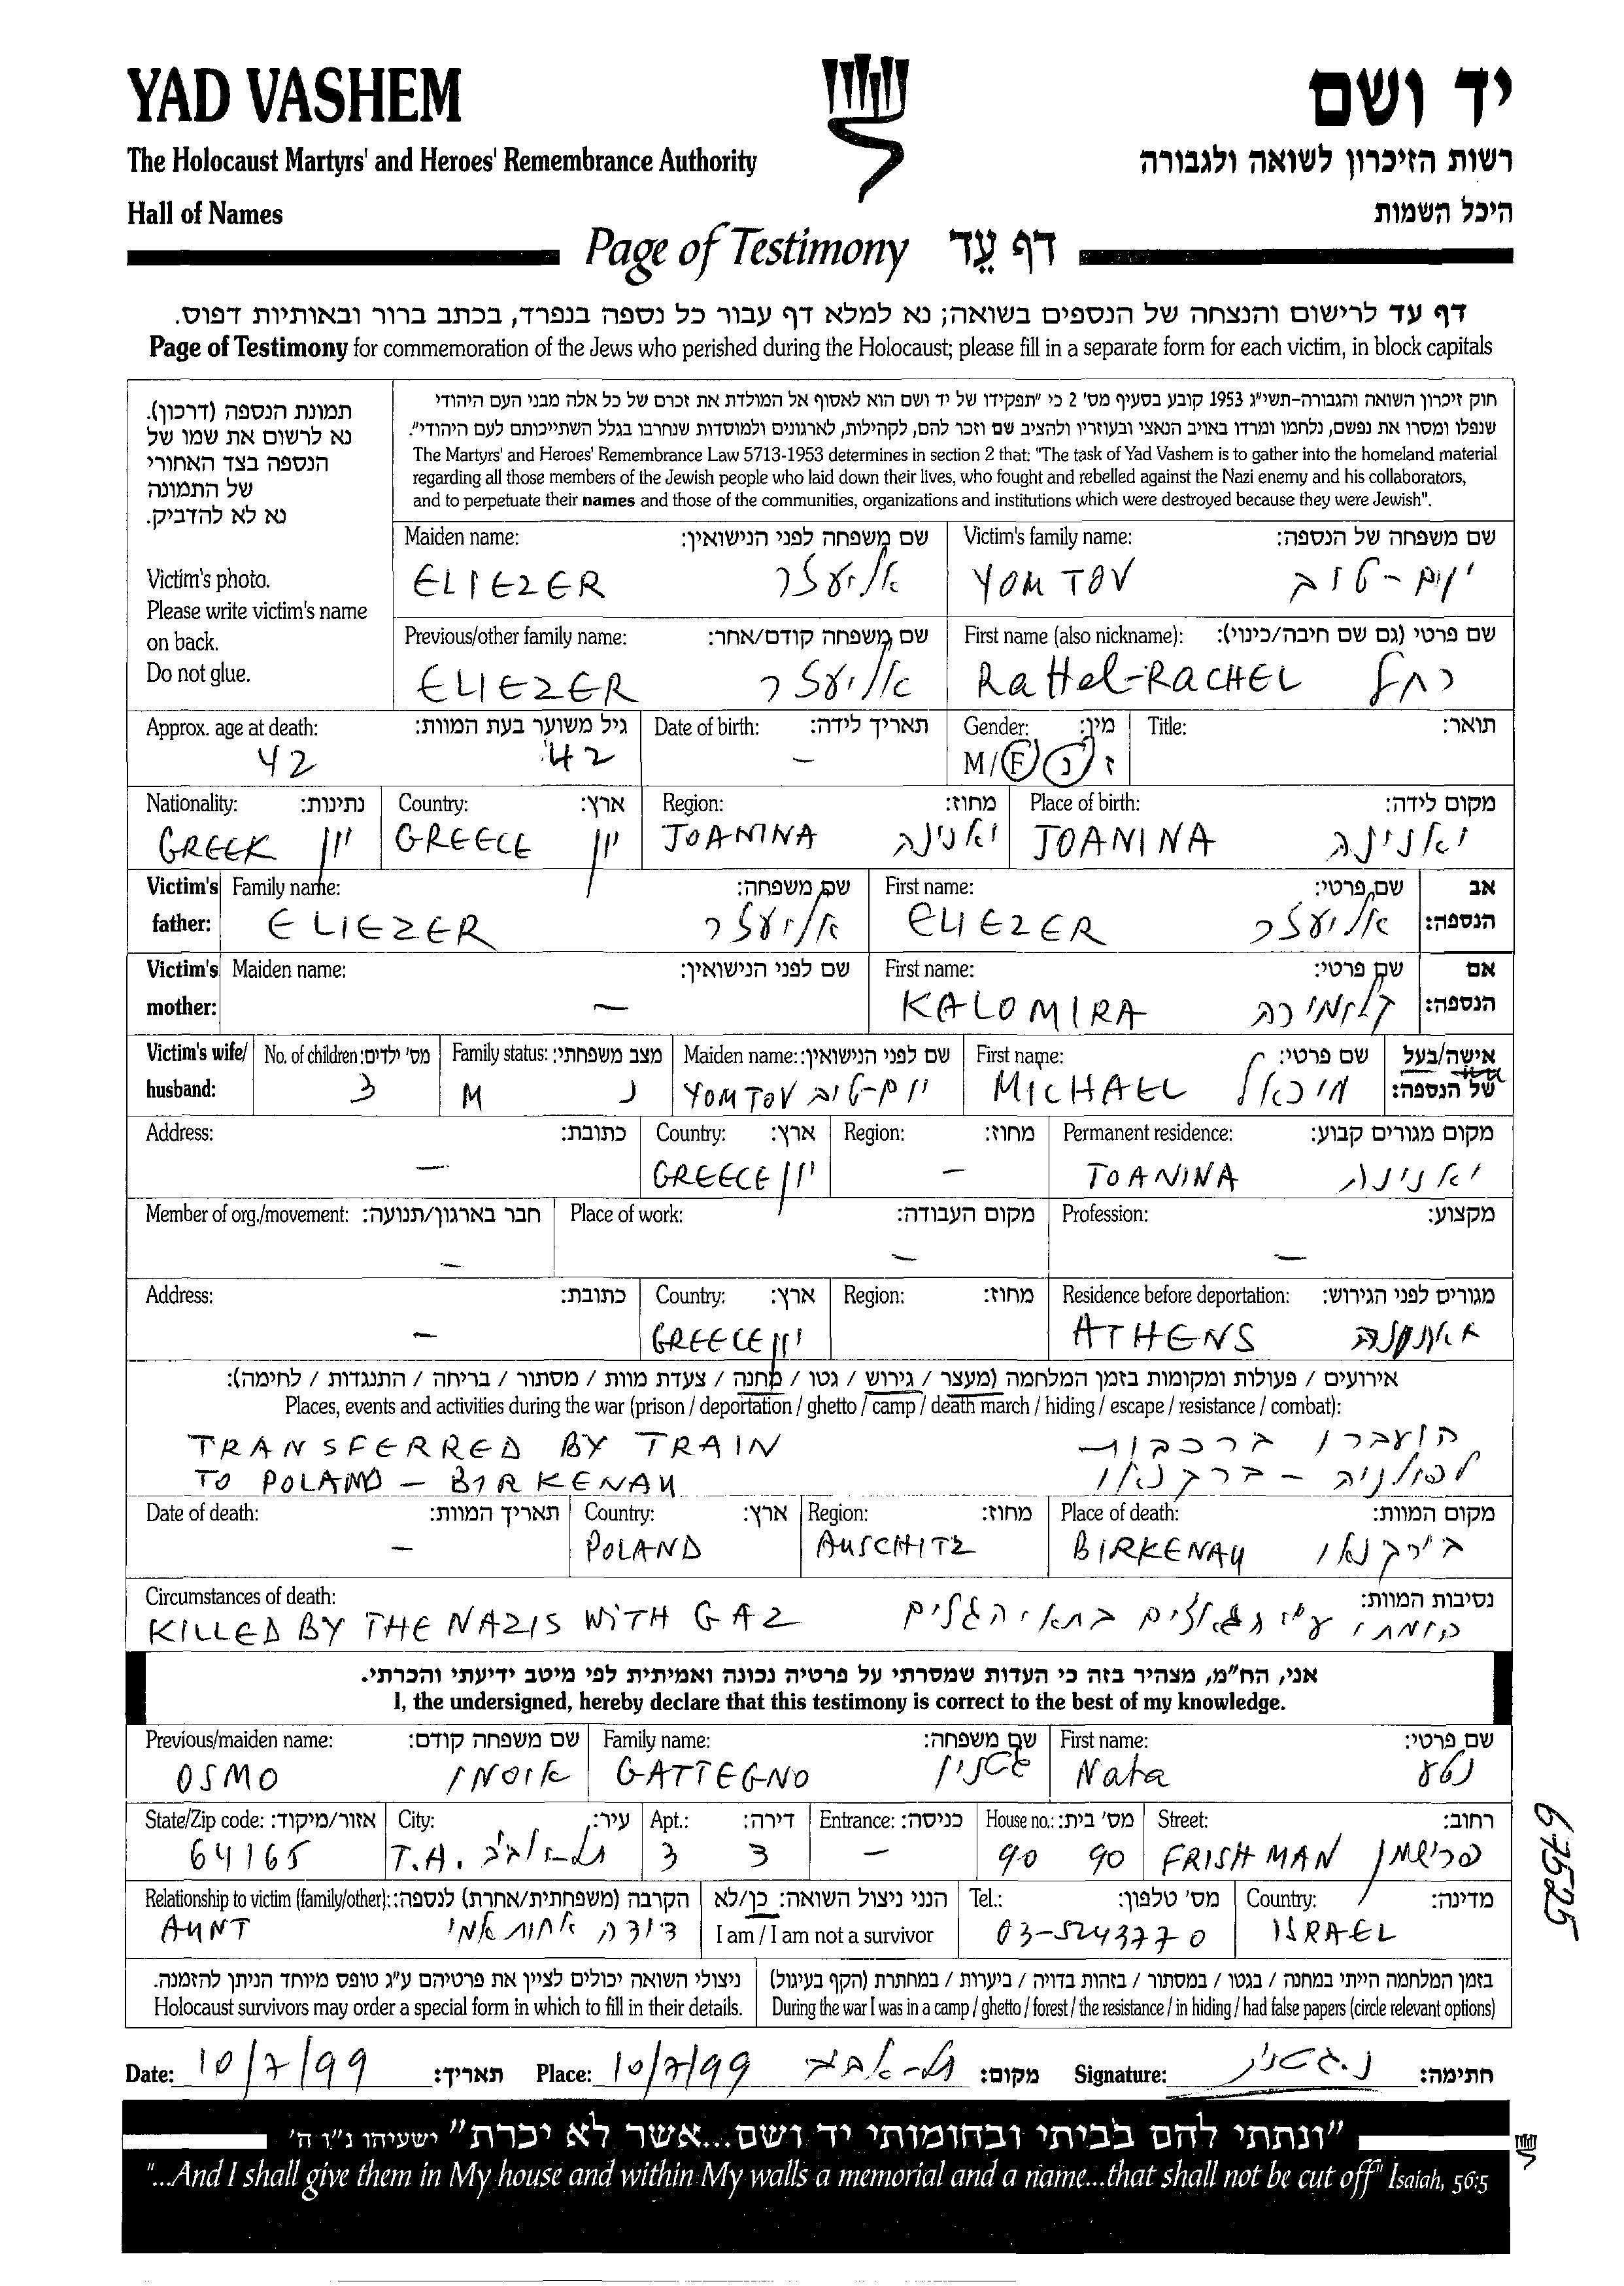 YAD VASHEM
יד ושם
The Holocaust Martyrs' and Heroes' Remembrance Authority
רשות הזיכרון לשואה ולגבורה
Hall of Names
היכל השמות
Page of Testimony דף עֵד
דף עד לרישום והנצחה של הנספים בשואה; נא למלא דף עבור כל נספה בנפרד, בכתב ברור ובאותיות דפוס.
Page of Testimony for commemoration of the Jews who perished during the Holocaust; please fill in a separate form for each victim, in block capitals
תמונת הנספה (דרכון).
נא לרשום את שמו של
הנספה בצד האחורי
של התמונה
נא לא להדביק.
Victim's photo.
Please write victim's name
on back.
Do not glue.
חוק זיכרון השואה והגבורה-תשי"ג 1953 קובע בסעיף מס' 2 כי "תפקידו של יד ושם הוא לאסוף אל המולדת את זכרם של כל אלה מבני העם היהודי
שנפלו ומסרו את נפשם, נלחמו ומרדו באויב הנאצי ובעוזריו ולהציב שם וזכר להם, לקהילות, לארגונים ולמוסדות שנחרבו בגלל השתייכותם לעם היהודי".
The Martyrs' and Heroes' Remembrance Law 5713-1953 determines in section 2 that: "The task of Yad Vashem is to gather into the homeland material
regarding all those members of the Jewish people who laid down their lives, who fought and rebelled against the Nazi enemy and his collaborators,
and to perpetuate their names and those of the communities, organizations and institutions which were destroyed because they were Jewish".
Maiden name: שם משפחה לפני הנישואין: Victim's family name: שם משפחה של הנספה:
ELIEZER אליעזר YOM TOV יום-טוב
Previous/other family name: שם משפחה קודם/אחר: First name (also nickname): שם פרטי (גם שם חיבה/כינוי):
ELIEZER אליעזר RaHel-RACHEL רחל
Approx. age at death: גיל משוער בעת המוות: Date of birth: תאריך לידה: Gender: מין: Title: תואר:
42 42 – M / F נ / ז
Nationality: נתינות: Country: ארץ: Region: מחוז: Place of birth: מקום לידה:
GREEK יון GREECE יון JOANINA יאנינה JOANINA יאנינה
Victim's Family name: שם משפחה: First name: שם פרטי: אב
father: ELIEZER אליעזר ELIEZER אליעזר הנספה:
Victim's Maiden name: שם לפני הנישואין: First name: שם פרטי: אם
mother: – KALOMIRA קלומירה הנספה:
Victim's wife/ No. of children: מס' ילדים: Family status: מצב משפחתי: Maiden name: שם לפני הנישואין: First name: שם פרטי: אישה/בעל
husband: 3 M נ YOM TOV יום-טוב MICHAEL מיכאל של הנספה:
Address: כתובת: Country: ארץ: Region: מחוז: Permanent residence: מקום מגורים קבוע:
– GREECE יון – JOANINA יאנינה
Member of org./movement: חבר בארגון/תנועה: Place of work: מקום העבודה: Profession: מקצוע:
– – –
Address: כתובת: Country: ארץ: Region: מחוז: Residence before deportation: מגורים לפני הגירוש:
– GREECE יון ATHENS
אירועים / פעולות ומקומות בזמן המלחמה (מעצר / גירוש / גטו / מחנה / צעדת מוות / מסתור / בריחה / התנגדות / לחימה):
Places, events and activities during the war (prison / deportation / ghetto / camp / death march / hiding / escape / resistance / combat):
TRANSFERRED BY TRAIN הועברו ברכבות
TO POLAND – BIRKENAU לפולניה – ברקנאו
Date of death: תאריך המוות: Country: ארץ: Region: מחוז: Place of death: מקום המוות:
– POLAND AUSCHITZ BIRKENAU בירקנאו
Circumstances of death: נסיבות המוות:
KILLED BY THE NAZIS WITH GAZ הומתו ע"י הנאצים בתאי הגזים
אני, הח"מ, מצהיר בזה כי העדות שמסרתי על פרטיה נכונה ואמיתית לפי מיטב ידיעתי והכרתי.
I, the undersigned, hereby declare that this testimony is correct to the best of my knowledge.
Previous/maiden name: שם משפחה קודם: Family name: שם משפחה: First name: שם פרטי:
OSMO אוסמו GATTEGNO גטניו Nata נטע
State/Zip code: אזור/מיקוד: City: עיר: Apt.: דירה: Entrance: כניסה: House no.: מס' בית: Street: רחוב:
64165 T.A. תל-אביב 3 3 – 90 90 FRISHMAN פרישמן
Relationship to victim (family/other): הקרבה (משפחתית/אחרת) לנספה: הנני ניצול השואה: כן/לא Tel.: מס' טלפון: Country: מדינה:
AUNT דודה אחות אמי I am / I am not a survivor 03-5243770 ISRAEL
ניצולי השואה יכולים לציין את פרטיהם ע"ג טופס מיוחד הניתן להזמנה. בזמן המלחמה הייתי במחנה / בגטו / במסתור / בזהות בדויה / ביערות / במחתרת (הקף בעיגול)
Holocaust survivors may order a special form in which to fill in their details. During the war I was in a camp / ghetto / forest / the resistance / in hiding / had false papers (circle relevant options)
Date: 10/7/99 תאריך: Place: 10/7/99 תל-אביב מקום: Signature: נ. גטניו חתימה:
"ונתתי להם בביתי ובחומותי יד ושם...אשר לא יכרת" ישעיהו נ"ו ה'
"...And I shall give them in My house and within My walls a memorial and a name...that shall not be cut off" Isaiah, 56:5
67525